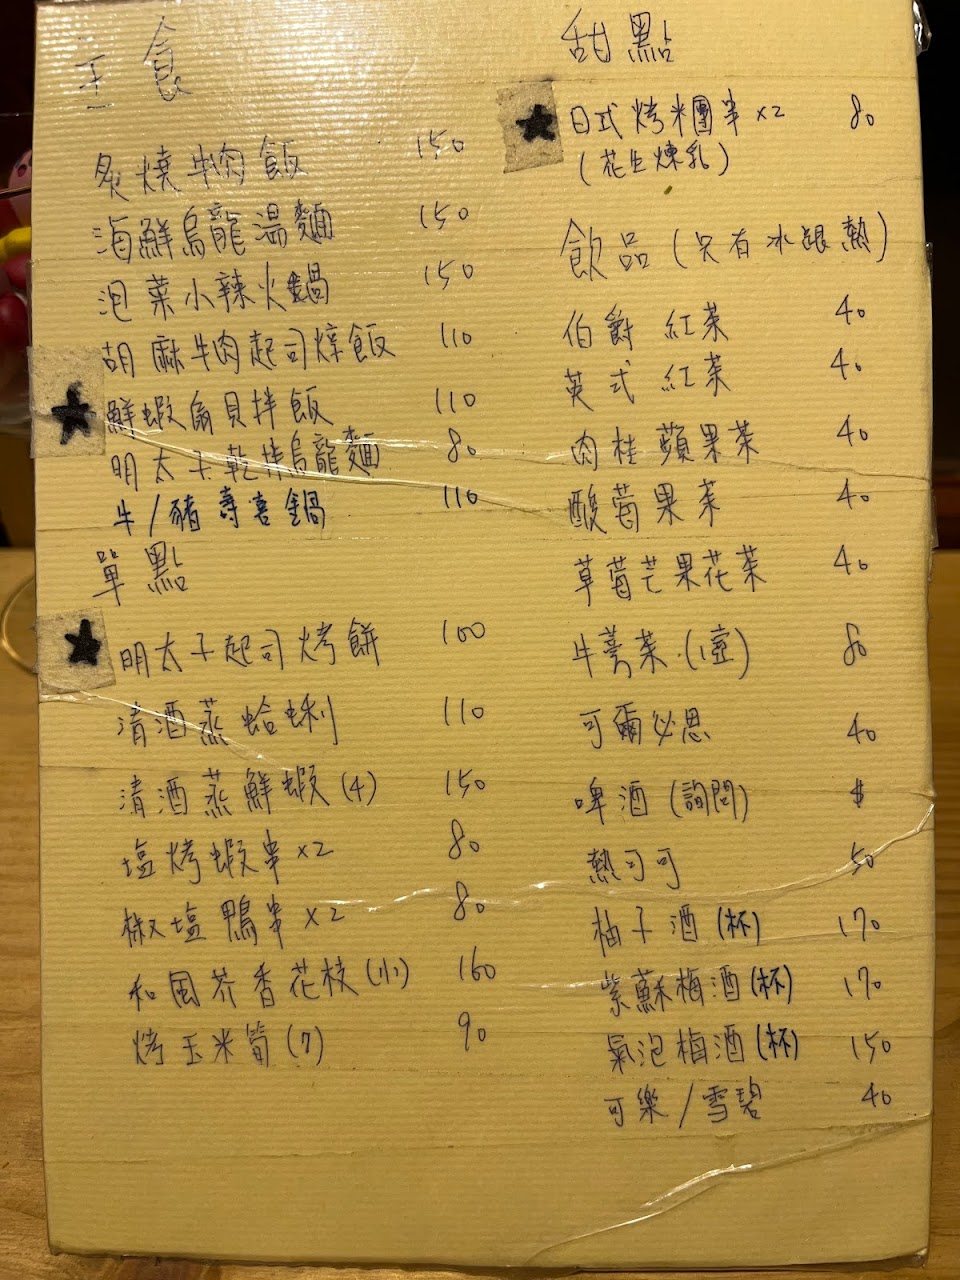 主食
炙燒牛肉飯 150
海鮮烏龍湯麵 150
泡菜小辣火鍋 150
胡麻牛肉起司燉飯 110
★鮮蝦扇貝拌飯 110
明太子乾拌烏龍麵 80
牛/豬壽喜鍋 110
單點
★明太子起司烤餅 100
清酒蒸蛤蜊 110
清酒蒸鮮蝦(4) 150
塩烤蝦串x2 80
椒塩鴨串x2 80
和風芥香花枝(小) 160
烤玉米筍(7) 90
甜點
★日式烤米團串x2 80
(花生煉乳)
飲品(只有冰跟熱)
伯爵紅茶 40
英式紅茶 40
肉桂蘋果茶 40
酸莓果茶 40
草莓芒果花茶 40
牛蒡茶(1壺) 80
可爾必思 40
啤酒(詢問) $
熱可可 50
柚子酒(杯) 170
紫蘇梅酒(杯) 170
氣泡梅酒(杯) 150
可樂/雪碧 40